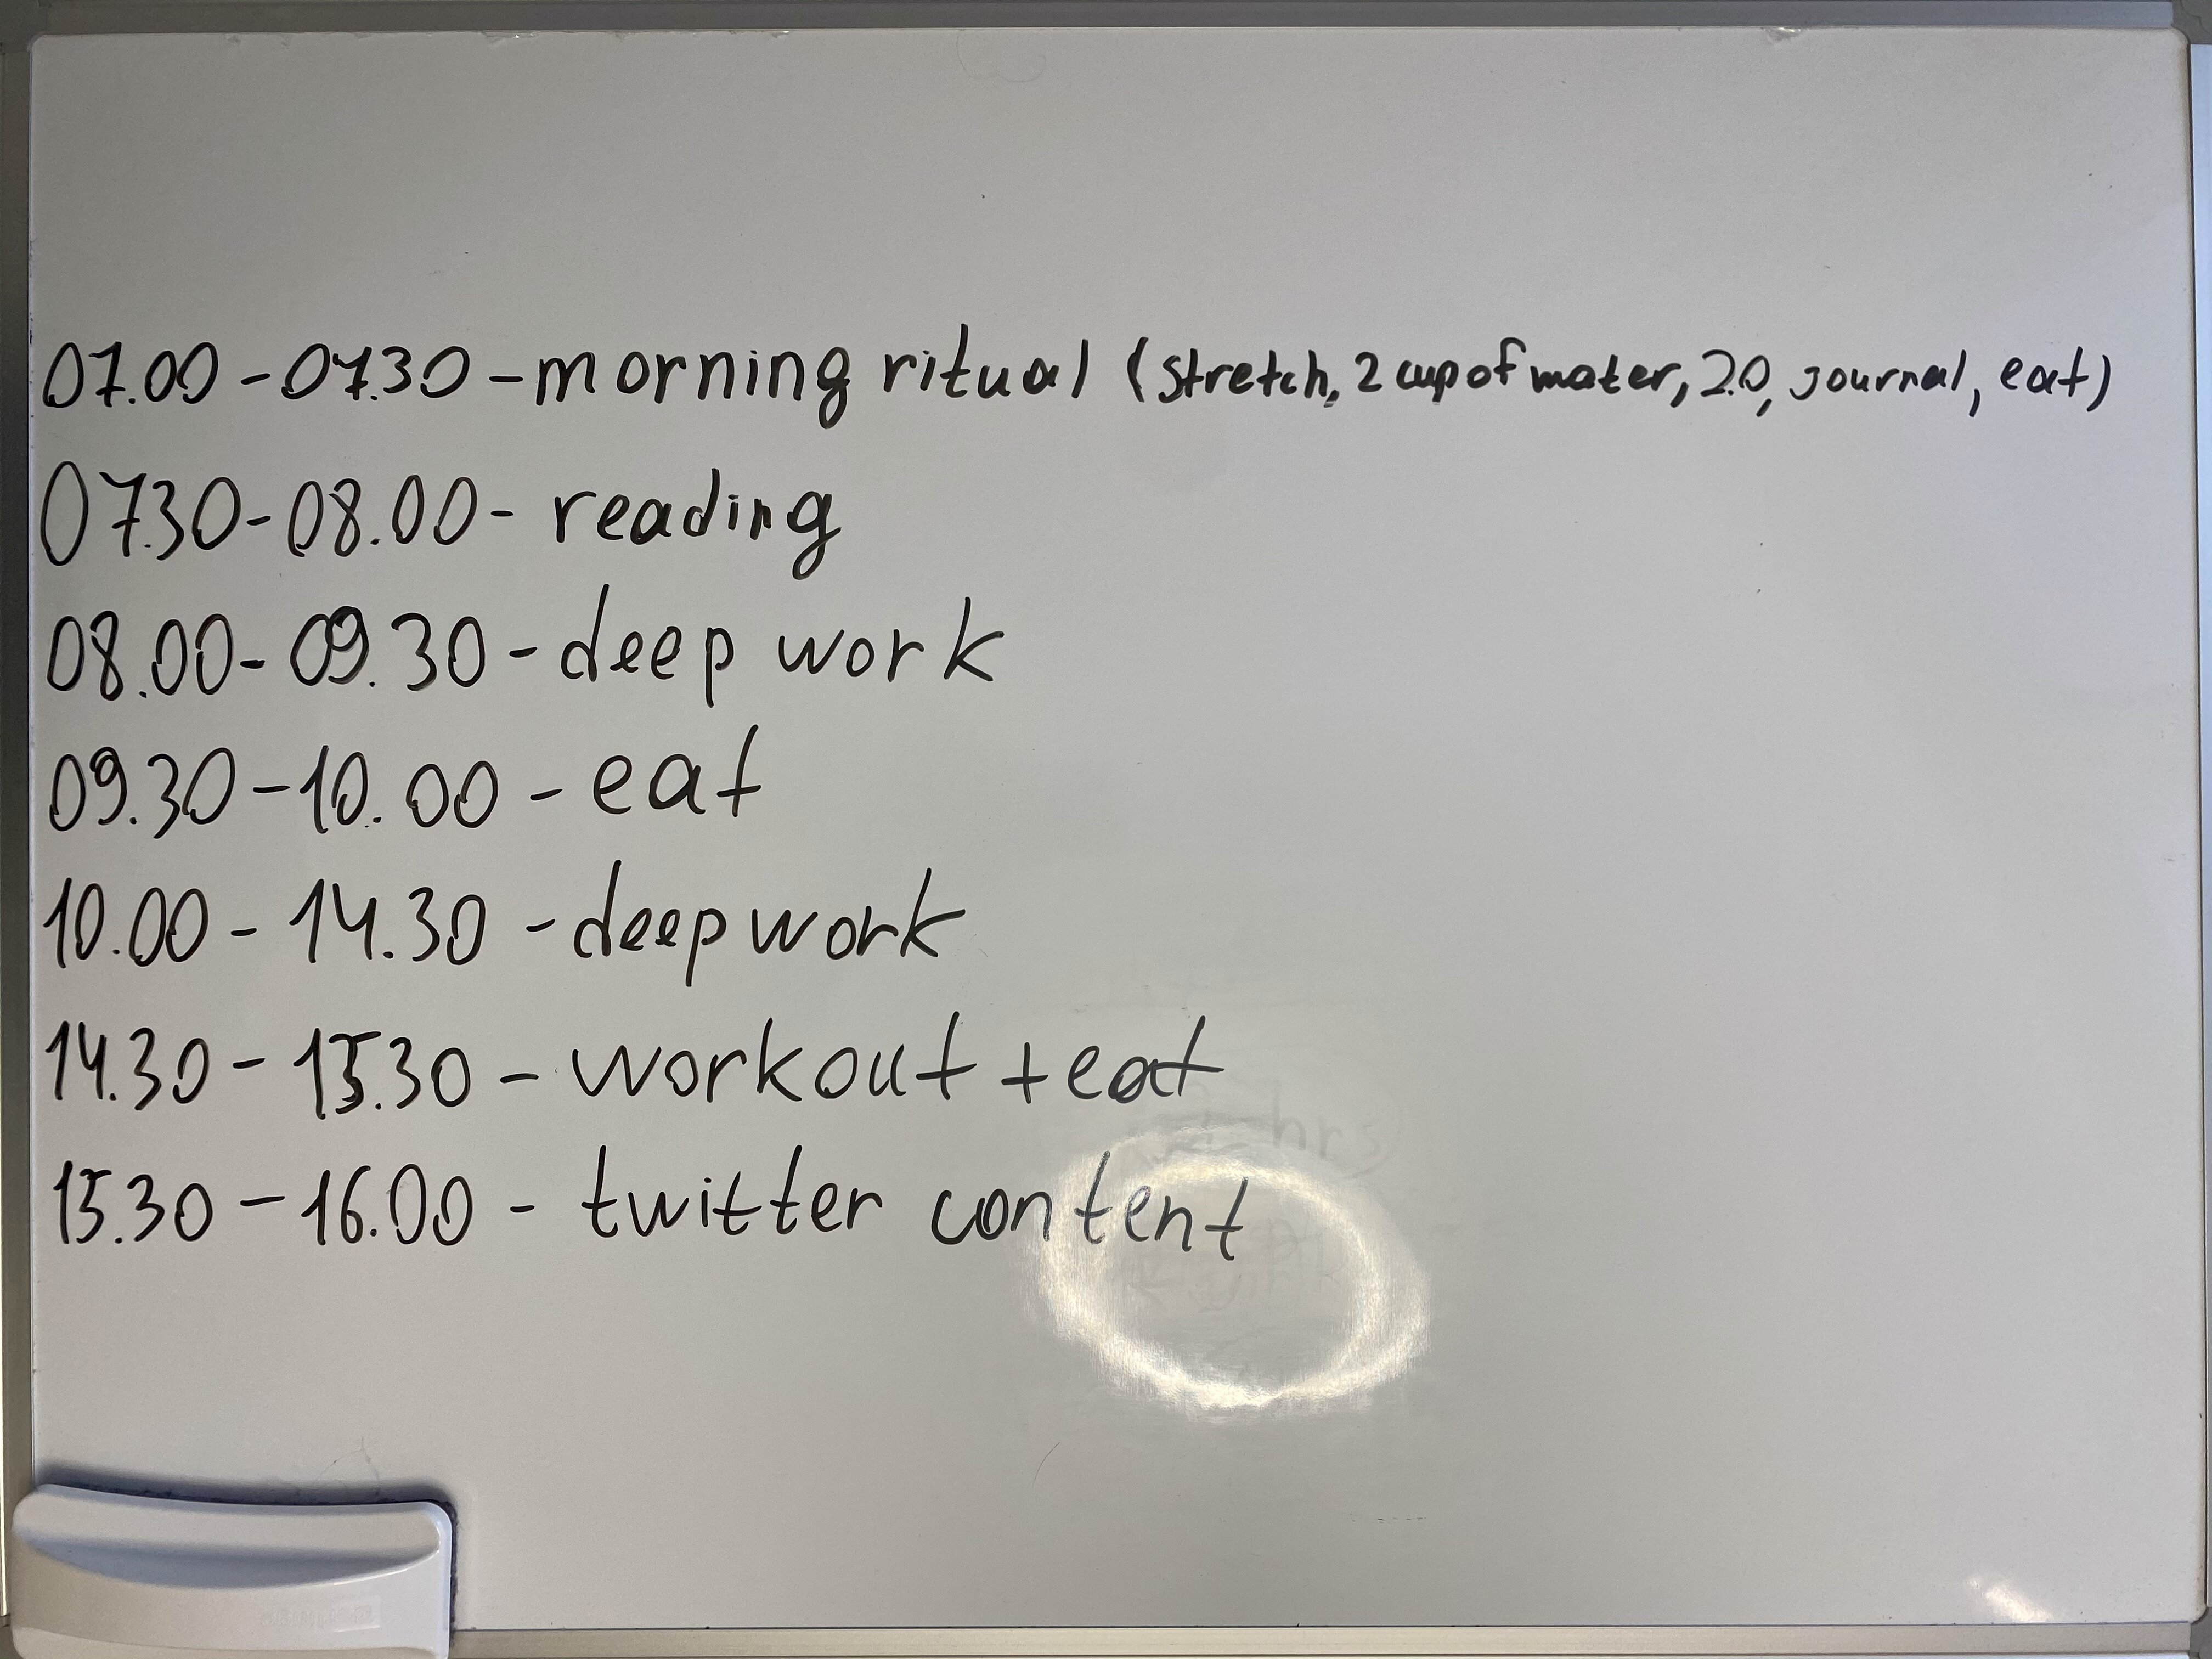 07.00 - 07.30 - morning ritual (stretch, 2 cup of water, 2.0, journal, eat)
07.30 - 08.00 - reading
08.00 - 09.30 - deep work
09.30 - 10.00 - eat
10.00 - 14.30 - deep work
14.30 - 15.30 - workout + eat
15.30 - 16.00 - twitter content